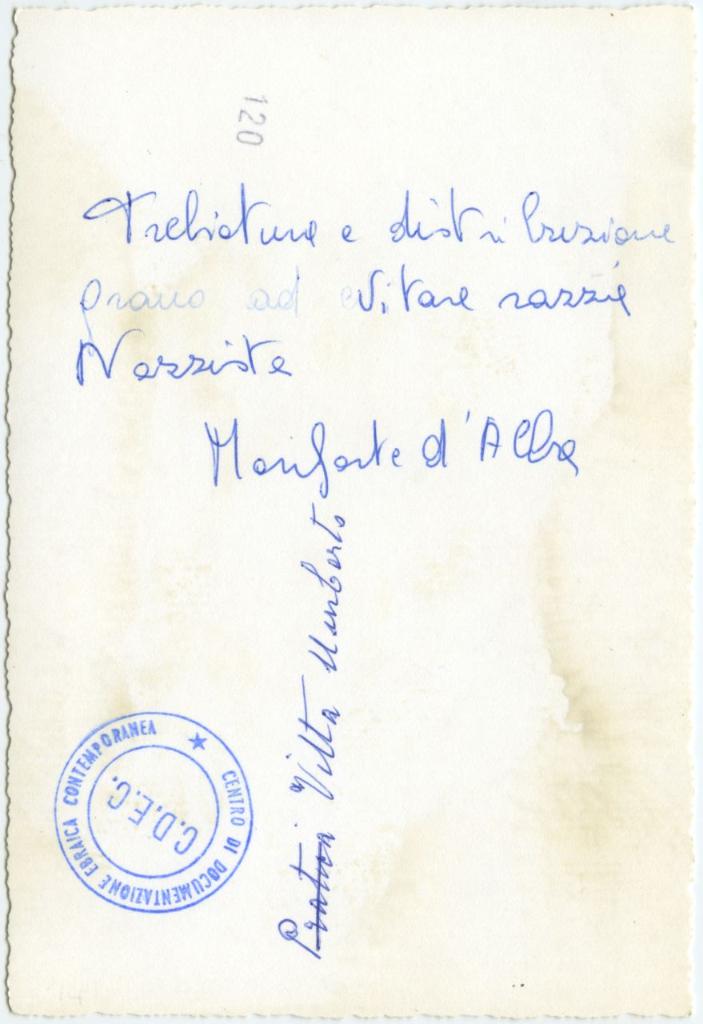 120
Trebiatura e distribuzione
grano ad evitare razzie
Nazziste
Monforte d'Alba
Vitta Umberto
CENTRO DI DOCUMENTAZIONE EBRAICA CONTEMPORANEA
C.D.E.C.